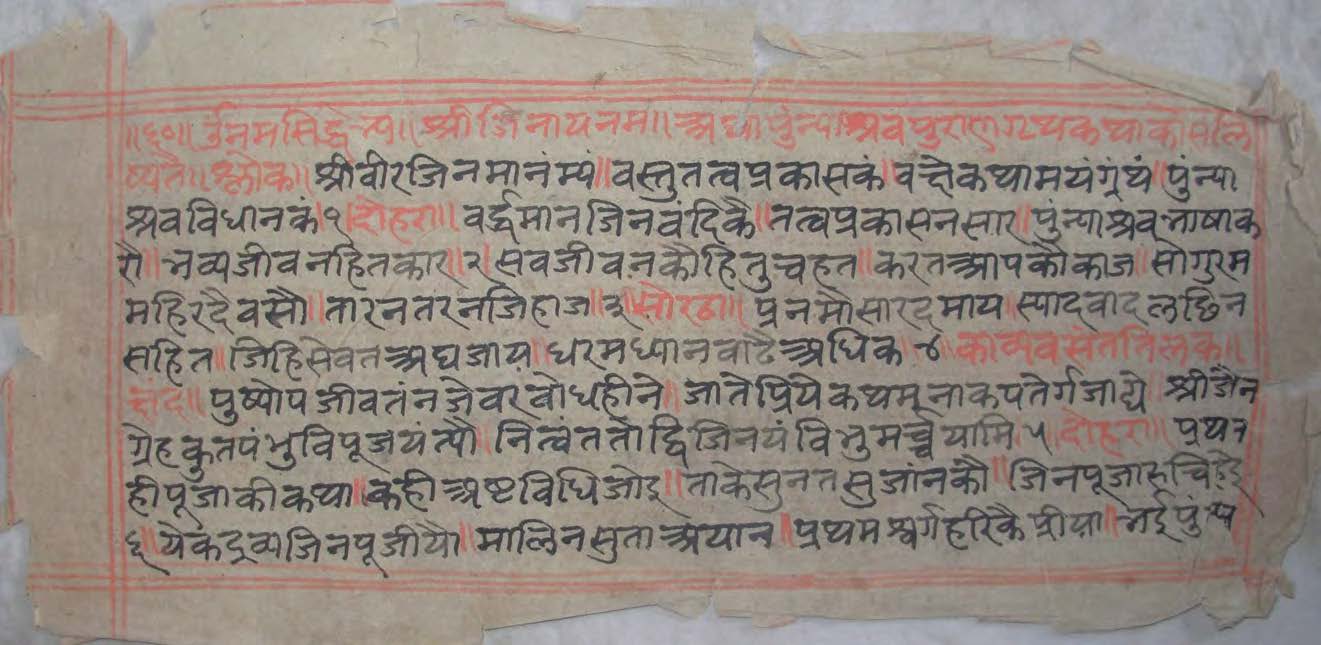 ॥६०॥ र्उनमसिद्धेभ्य॥ श्रीजिनायनम॥ अथापुंन्याश्रवपुराणग्रंथकथाकोसलि
ष्यते॥ श्लोक॥ श्रीवीरजिनमानंम्यं॥ वस्तुतत्वप्रकासकं॥ वक्षेकथामयंगृंथं॥ पुंन्या
श्रवविधानकं १॥ दोहरा॥ वर्द्धमानजिनवंदिकै॥ तत्वप्रकासनसार॥ पुंन्याश्रवभाषाक
रौ॥ भव्यजीवनहितकार॥ २॥ सवजीवनकौहितुचहत॥ करतआपकौकाज॥ सोगुरम
महिरदैवसौ॥ तारनतरनजिहाज॥ ३॥ सोरठा॥ प्रनमौसारदमाय॥ स्यादवादलछिन
सहित॥ जिहिसेवतअघजाय॥ धरमध्यानवाढैअधिक ४ काव्यवसंततिलक॥
छंद॥ पुष्पोपजीवतंनजैवरवोधहीने॥ जातेप्रियेकथमूनाकपतेर्गजाद्ये श्रीजैन
ग्रेहकुतपंभुविपूजयंत्यौ॥ नित्वंततोद्विजिनयंविभुमर्च्चयामि ५ दोहरा॥ प्रथन
हीपूजाकीकथा॥ कहीअष्टविधिजोइ॥ ताकेसुनतसुजांनकौ॥ जिनपूजारुचिहोइ
६॥ येकद्रव्यजिनपूजीयौ॥ मालिनसुताअयान॥ प्रथमश्वर्गहरिकैप्रीया॥ भईपुंन्य